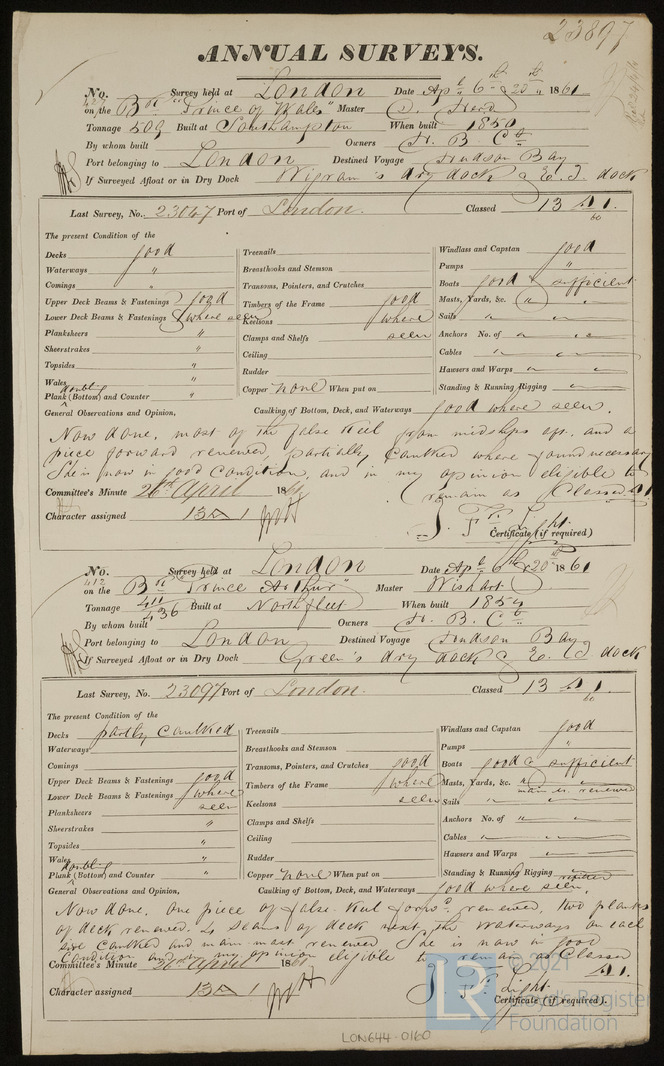 23897
ANNUAL SURVEYS.
No. 427 Survey held at London Date Apl 6th & 20th 1861
on the Bqe "Prince of Wales" Master D. Herd
Tonnage 509 Built at Southampton When built 1850
By whom built Owners H. B. Co
Port belonging to London Destined Voyage Hudson Bay
If Surveyed Afloat or in Dry Dock Wigram's dry dock & E. I. dock
Last Survey, No. 23047 Port of London. Classed 13 A 1. 60
The present Condition of the
Decks good
Waterways "
Comings "
Upper Deck Beams & Fastenings good
Lower Deck Beams & Fastenings where seen
Planksheers "
Sheerstrakes "
Topsides "
Wales "
doubling
Plank (Bottom) and Counter "
Treenails
Breasthooks and Stemson
Transoms, Pointers, and Crutches
Timbers of the Frame good
Keelsons where
Clamps and Shelfs seen
Ceiling
Rudder
Copper none When put on
Windlass and Capstan good
Pumps "
Boats good & sufficient
Masts, Yards, &c. " "
Sails " "
Anchors No. of " "
Cables "
Hawsers and Warps "
Standing & Running Rigging "
General Observations and Opinion, Caulking of Bottom, Deck, and Waterways good where seen.
Now done, most of the false keel from midships aft, and a
piece forward renewed, partially caulked where found necessary
She is now in good condition, and in my opinion eligible to
remain as Classed A1
Committee's Minute 26th April 1861
Character assigned 13 A 1
J. F. Light
Certificate (if required)
No. 412 Survey held at London Date Apl 6th & 20th 1861
on the Bqe "Prince Arthur" Master Wishart
Tonnage 411 436 Built at Northfleet When built 1854
By whom built Owners H. B. Co
Port belonging to London Destined Voyage Hudson Bay
If Surveyed Afloat or in Dry Dock Green's dry dock & E. I. dock
Last Survey, No. 23097 Port of London. Classed 13 A 1. 60
The present Condition of the
Decks partly caulked
Waterways
Comings
Upper Deck Beams & Fastenings good
Lower Deck Beams & Fastenings where
Planksheers seen
Sheerstrakes "
Topsides "
Wales "
doubling
Plank (Bottom) and Counter "
Treenails
Breasthooks and Stemson
Transoms, Pointers, and Crutches good
Timbers of the Frame where
Keelsons seen
Clamps and Shelfs
Ceiling
Rudder
Copper none When put on
Windlass and Capstan good
Pumps "
Boats good & sufficient
Masts, Yards, &c. "
main m. renewed
Sails "
Anchors No. of "
Cables "
Hawsers and Warps "
Standing & Running Rigging
General Observations and Opinion, Caulking of Bottom, Deck, and Waterways good where seen.
Now done. One piece of false keel forwd. renewed, two planks
of deck renewed. seams of deck next the Waterways on each
side caulked and main mast renewed She is now in good
Condition and in my opinion eligible to remain as Classed
A1.
Committee's Minute 26 April 1861
Character assigned 13 A 1
J. F. Light
Certificate (if required).
© 2021
LR Lloyd's Register
Foundation
LON644-0160